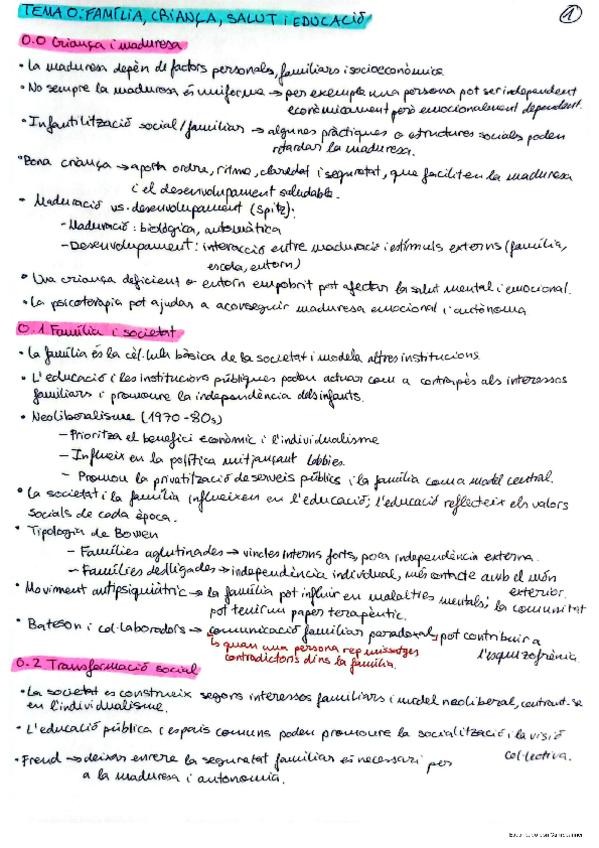 TEMA 0: FAMÍLIA, CRIANÇA, SALUT i EDUCACIÓ
1
0.0 Criança i maduresa
• La maduresa depèn de factors personals, familiars i socioeconòmics.
• No sempre la maduresa és uniforme → per exemple una persona pot ser independent
econòmicament però emocionalment dependent.
• Infantilització social/familiar → algunes pràctiques o estructures socials poden
retardar la maduresa.
• Bona criança → aporta ordre, ritme, claredat i seguretat, que faciliten la maduresa
i el desenvolupament saludable.
• Maduració vs. desenvolupament (Spitz):
- Maduració: biològica, automàtica
- Desenvolupament: interacció entre maduració i estímuls externs (família,
escola, entorn)
• Una criança deficient o entorn empobrit pot afectar la salut mental i emocional.
• La psicoteràpia pot ajudar a aconseguir maduresa emocional i autònoma
0.1 Família i societat
• La família és la cèl·lula bàsica de la societat i modela altres institucions.
• L'educació i les institucions públiques poden actuar com a contrapès als interessos
familiars i promoure la independència dels infants.
• Neoliberalisme (1970-80s)
- Prioritza el benefici econòmic i l'individualisme
- Influeix en la política mitjançant lobbies.
- Promou la privatització de serveis públics i la família com a model central.
• La societat i la família influeixen en l'educació; l'educació reflecteix els valors
socials de cada època.
• Tipologia de Bowen
- Famílies aglutinades → vincles interns forts, poca independència externa.
- Famílies deslligades → independència individual, més contacte amb el món
exterior.
• Moviment antipsiquiàtric → la família pot influir en malalties mentals; la comunitat
pot tenir un paper terapèutic.
• Bateson i col·laboradors → comunicació familiar paradoxal, pot contribuir a
l'esquizofrènia
↳ quan una persona rep missatges
contradictoris dins la família.
0.2 Transformació social
• La societat es construeix segons interessos familiars i model neoliberal, centrant-se
en l'individualisme.
• L'educació pública i espais comuns poden promoure la socialització i la visió
col·lectiva.
• Freud → deixar enrere la seguretat familiar és necessari per
a la maduresa i autonomia.